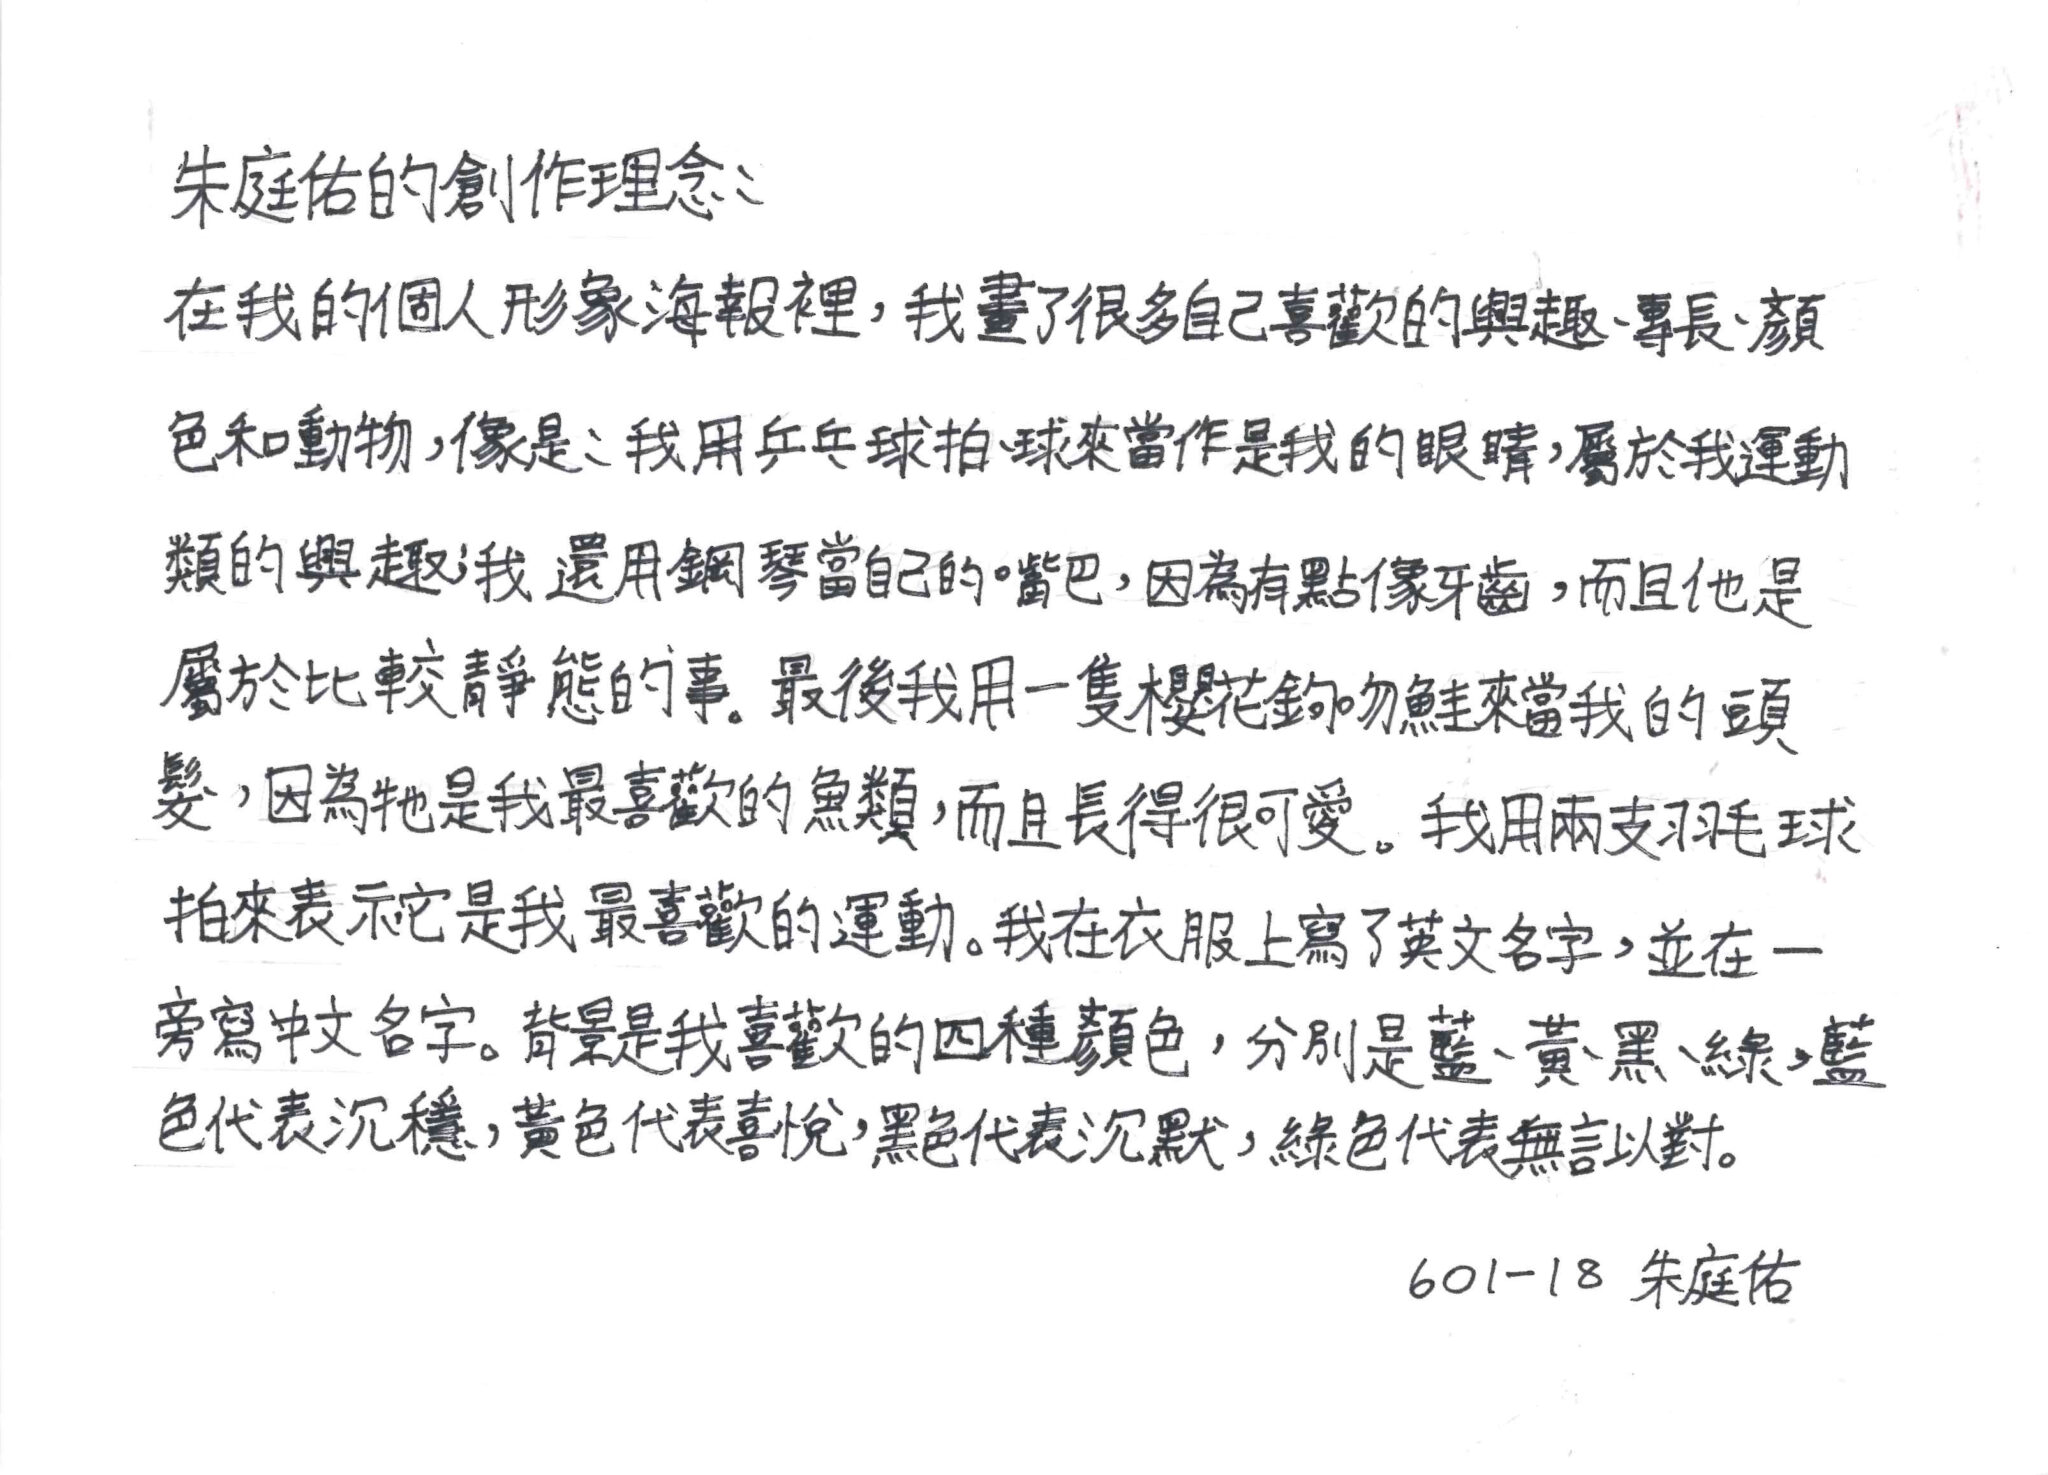 朱庭佑的創作理念：
在我的個人形象海報裡，我畫了很多自己喜歡的興趣、專長、顏
色和動物，像是：我用乒乓球拍、球來當作是我的眼睛，屬於我運動
類的興趣；我還用鋼琴當自己的嘴巴，因為有點像牙齒，而且他是
屬於比較靜態的事。最後我用一隻櫻花鉤吻鮭來當我的頭
髮，因為牠是我最喜歡的魚類，而且長得很可愛。我用兩支羽毛球
拍來表示它是我最喜歡的運動。我在衣服上寫了英文名字，並在一
旁寫中文名字。背景是我喜歡的四種顏色，分別是藍、黃、黑、綠，藍
色代表沉穩，黃色代表喜悅，黑色代表沉默，綠色代表無言以對。
601-18 朱庭佑